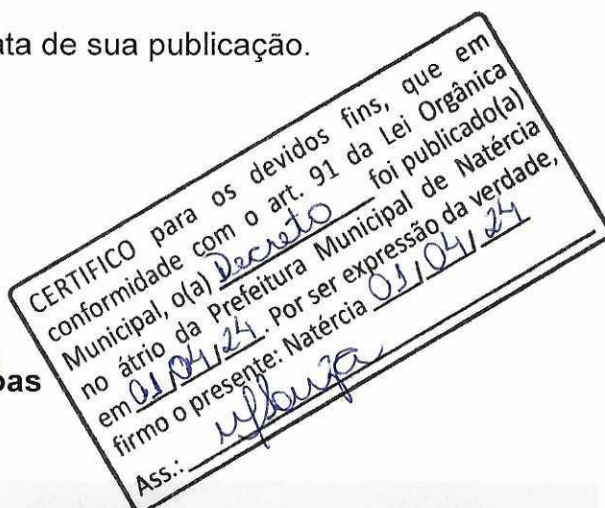 ata de sua publicação.
CERTIFICO para os devidos fins, que em
conformidade com o art. 91 da Lei Orgânica
Municipal, o(a) Decreto foi publicado(a)
no átrio da Prefeitura Municipal de Natércia
em 01/04/24. Por ser expressão da verdade,
firmo o presente: Natércia 01/04/24
Ass.:
oas